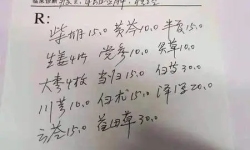 R:
柴胡15.0 黄芩10.0 半夏15.0
生姜4片 党参10.0 炙草10.0
大枣4枚 当归15.0 白芍30.0
川芎10.0 白术15.0 泽泻20.0
云苓15.0 益母草30.0